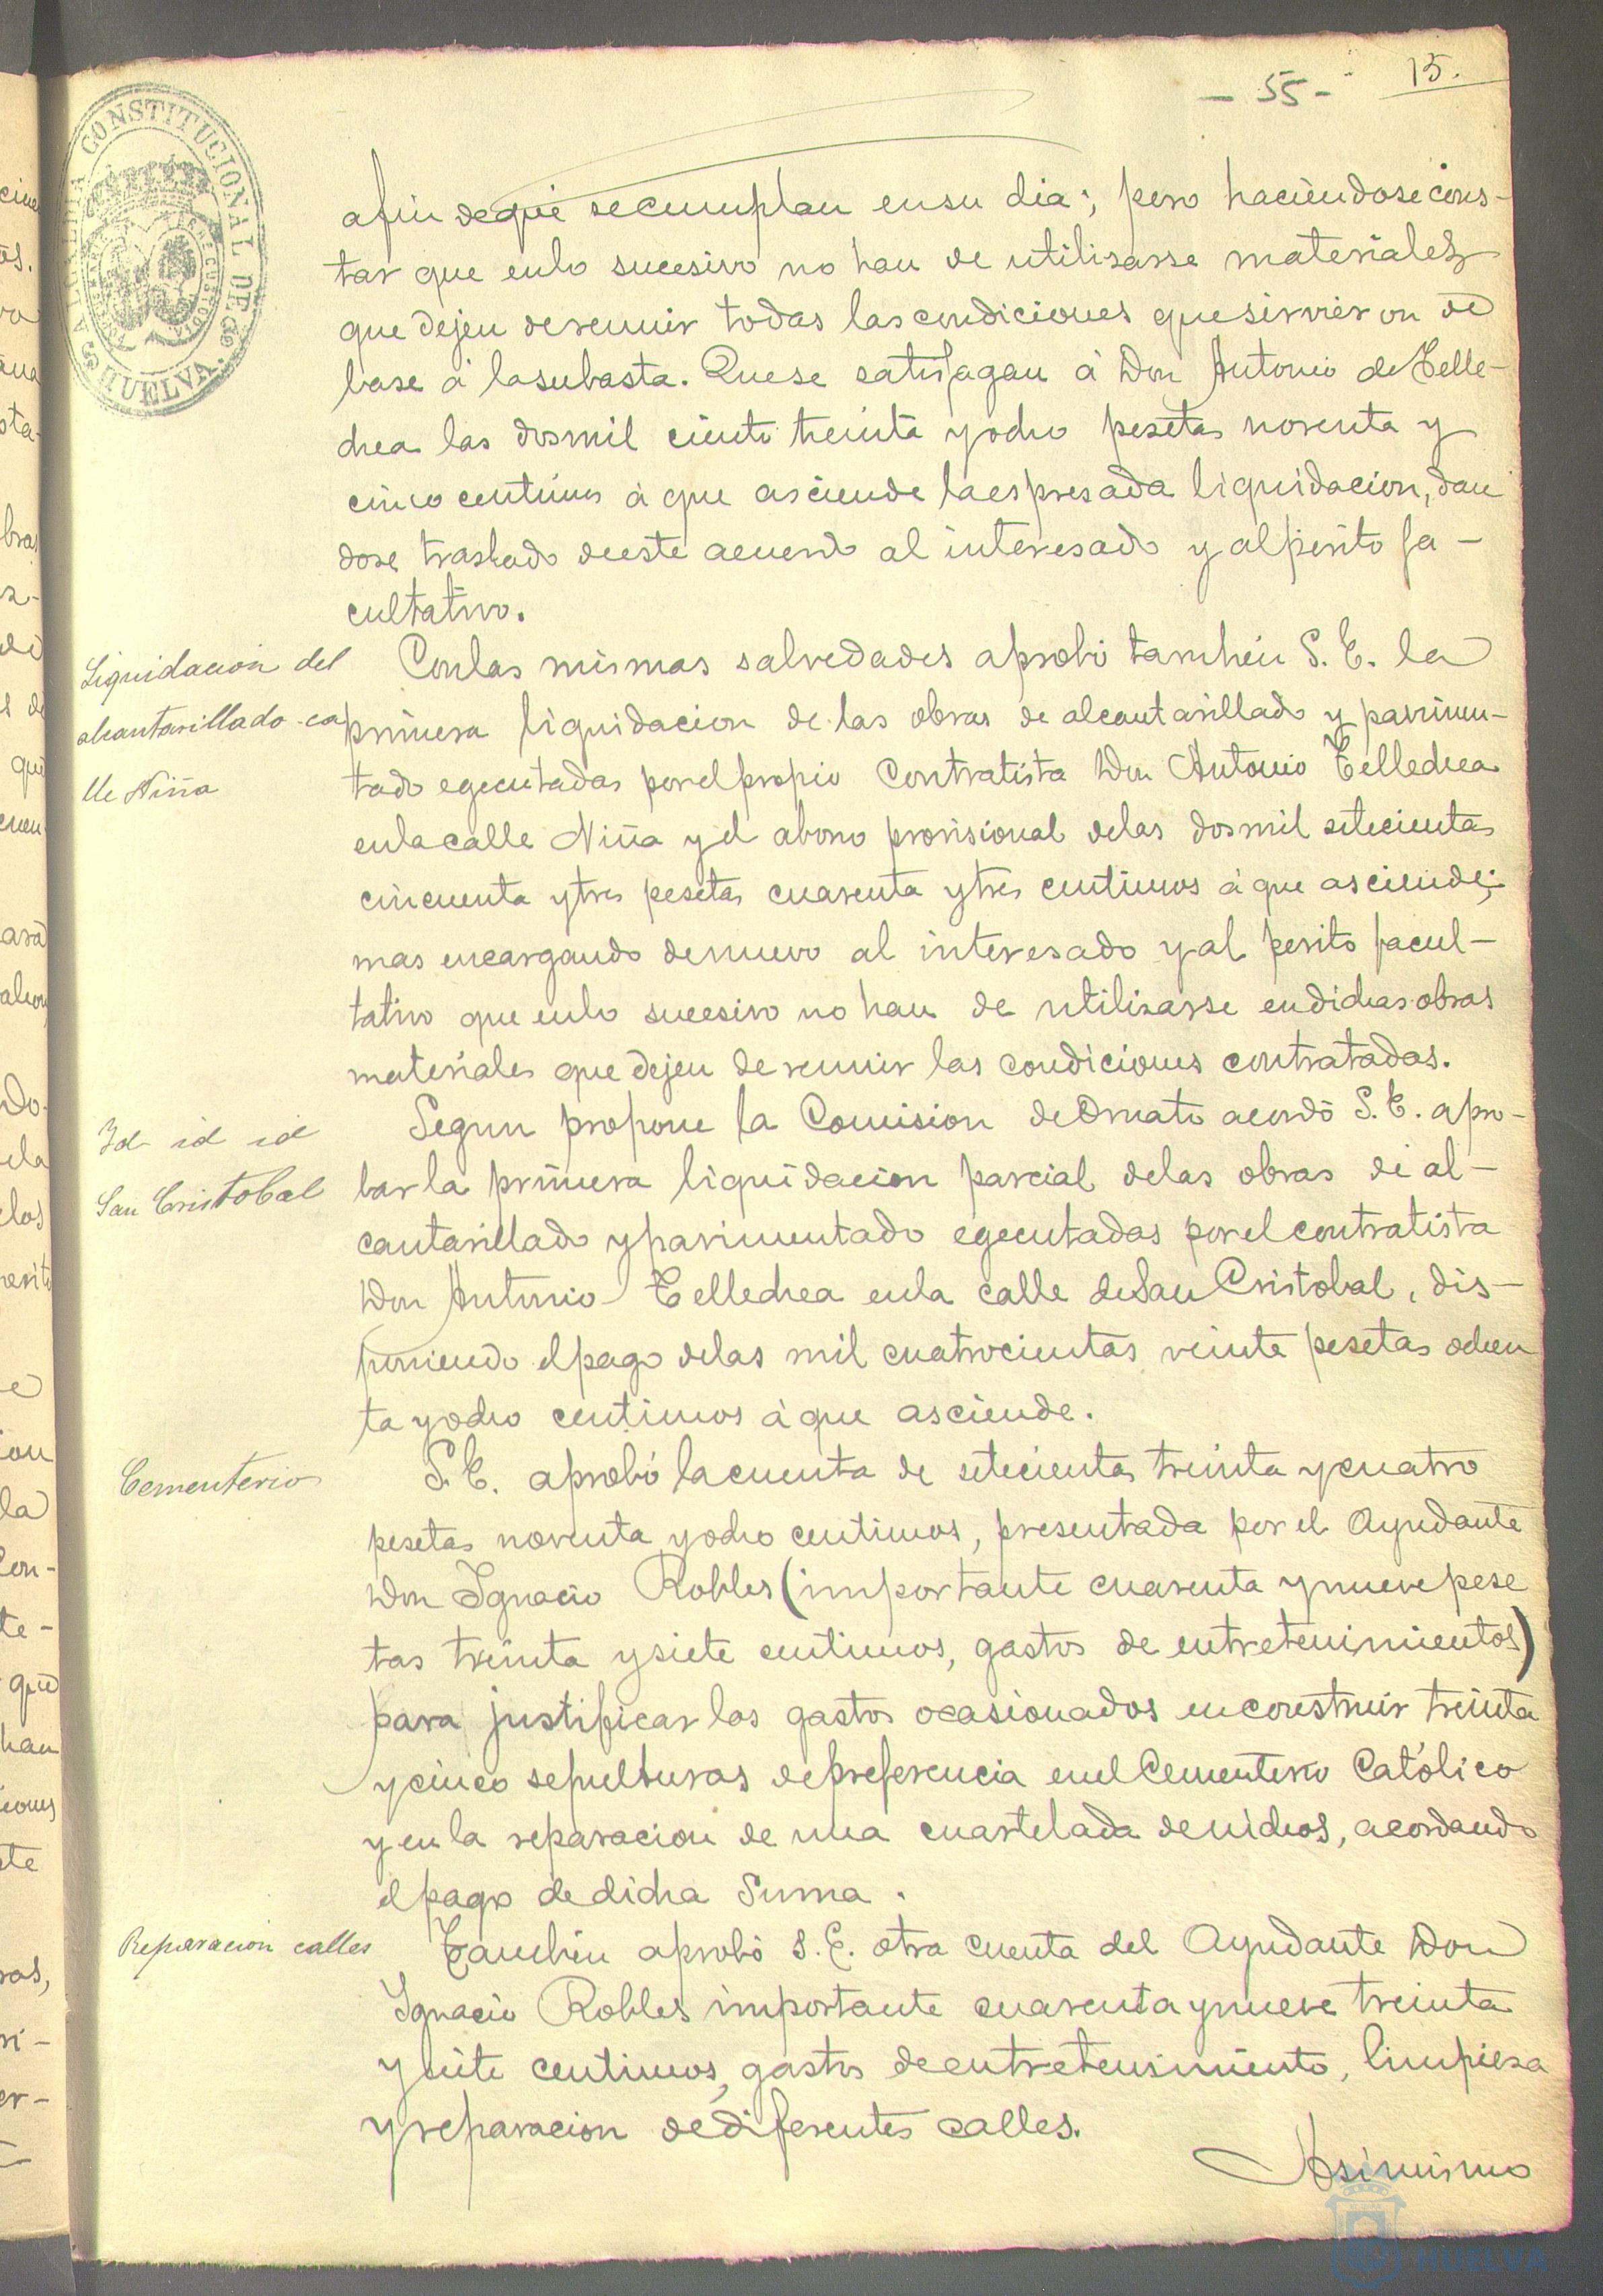 - 55 -
15.
ALCALDIA CONSTITUCIONAL DE
HUELVA.
afin de que se cumplan en su dia; pero haciendose cons-
tar que en lo sucesivo no han de utilizarse materiales
que dejen de reunir todas las condiciones que sirvieron de
base á la subasta. Que se satisfagan á Don Antonio de Telle-
chea las dos mil ciento treinta y ocho pesetas noventa y
cinco centimos á que asciende la espresada liquidacion, dan
dose traslado de este acuerdo al interesado y al perito fa-
cultativo.
Liquidacion del
alcantarillado ca
lle Niña
Con las mismas salvedades aprobó tambien S. E. la
primera liquidacion de las obras de alcantarillado y pavimen-
tado egecutadas por el propio Contratista Don Antonio Tellechea
en la calle Niña y el abono provisional de las dos mil setecientas
cincuenta y tres pesetas cuarenta y tres centimos á que asciende;
mas encargando de nuevo al interesado y al perito facul-
tativo que en lo sucesivo no han de utilizarse en dichas obras
materiales que dejen de reunir las condiciones contratadas.
Id id id
San Cristobal
Segun propone la Comision de Ornato acordó S. E. apro-
bar la primera liquidacion parcial de las obras de al-
cantarillado y pavimentado egecutadas por el contratista
Don Antonio Tellechea en la calle de San Cristobal, dis-
poniendo el pago de las mil cuatrocientas veinte pesetas ochen
ta y ocho centimos á que asciende.
Cementerio
S. E. aprobó la cuenta de setecientas treinta y cuatro
pesetas noventa y ocho centimos, presentada por el Ayudante
Don Ignacio Robles (importante cuarenta y nueve pese
tas treinta y siete centimos, gastos de entretenimientos)
para justificar los gastos ocasionados en construir treinta
y cinco sepulturas de preferencia en el Cementerio Católico
y en la reparacion de una cuartelada de nichos, acordando
el pago de dicha Suma.
Reparacion calles
Tambien aprobó S. E. otra cuenta del Ayudante Don
Ignacio Robles importante cuarenta y nueve treinta
y siete centimos, gastos de entretenimiento, limpieza
y reparacion de diferentes calles.
Asimismo
HUELVA